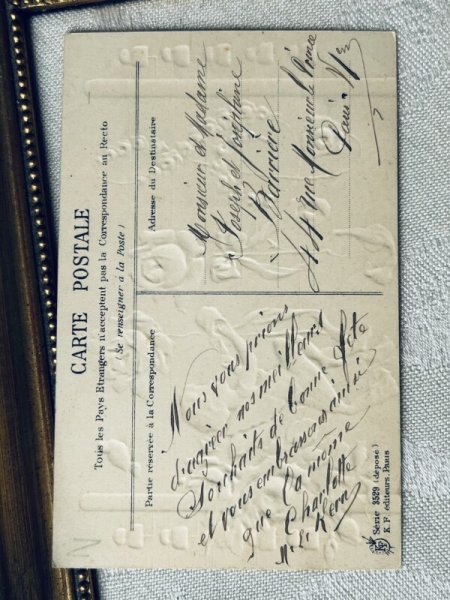 CARTE POSTALE
Tous les Pays Etrangers n'acceptent pas la Correspondance au Recto
(Se renseigner à la Poste)
Partie réservée à la Correspondance
Nous vous prions
d'agréer nos meilleurs
Souhaits de bonne fête
et vous embrassons ainsi
que la mème
Charlotte
Adresse du Destinataire
Monsieur et Madame
Joseph et Joséphine
Barrière
44 rue Monsieur le Prince
Paris VIem
Série 3529 (déposé)
K. F. éditeurs, Paris